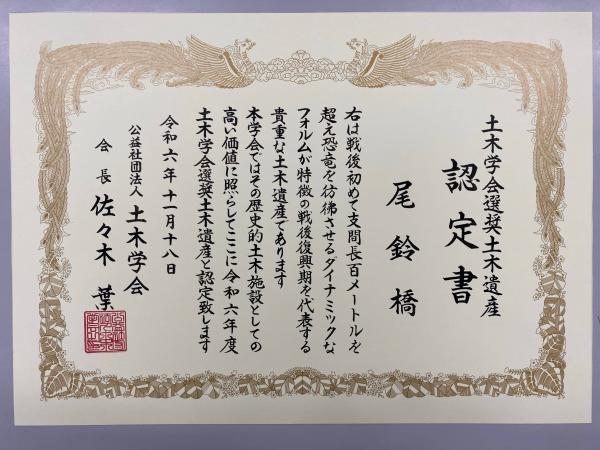 土木学会選奨土木遺産
認定書
尾鈴橋
右は戦後初めて支間長百メートルを
超え恐竜を彷彿させるダイナミックな
フォルムが特徴の戦後復興期を代表する
貴重な土木遺産であります
本学会ではその歴史的土木施設としての
高い価値に照らしてここに令和六年度
土木学会選奨土木遺産と認定致します
令和六年十一月十八日
公益社団法人 土木学会
会長 佐々木 葉